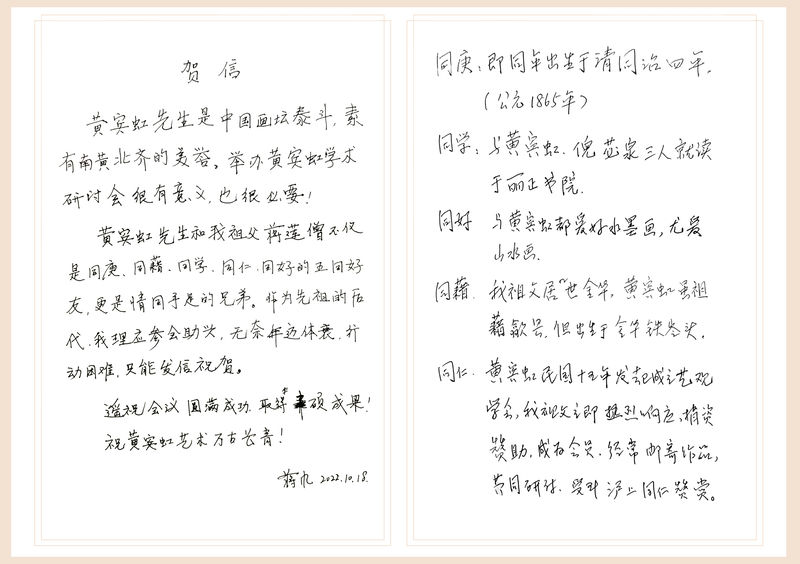 贺信
黄宾虹先生是中国画坛泰斗，素
有南黄北齐的美誉。举办黄宾虹学术
研讨会很有意义，也很必要！
黄宾虹先生和我祖父蒋莲僧不仅
是同庚、同藉、同学、同仁、同好的五同好
友，更是情同手足的兄弟。作为先祖的后
代，我理应参会助兴，无奈年迈体衰，行
动困难，只能发信祝贺。
遥祝会议圆满成功，取得丰硕成果！
祝黄宾虹艺术万古长青！
蒋 2022.10.18.
同庚：即同年出生于清同治四年，
（公元1865年）
同学：与黄宾虹、倪 三人就读
于丽正书院。
同好 与黄宾虹都爱好水墨画，尤爱
山水画。
同藉 我祖父居 世金华，黄宾虹虽祖
藉歙县，但出生于金华铁岭头。
同仁：黄宾虹民国十五年发起成立艺观
学会，我祖父立即 响应，捐资
赞助，成为会员，经常邮寄作品，
共同研讨，受到沪上同仁赞赏。